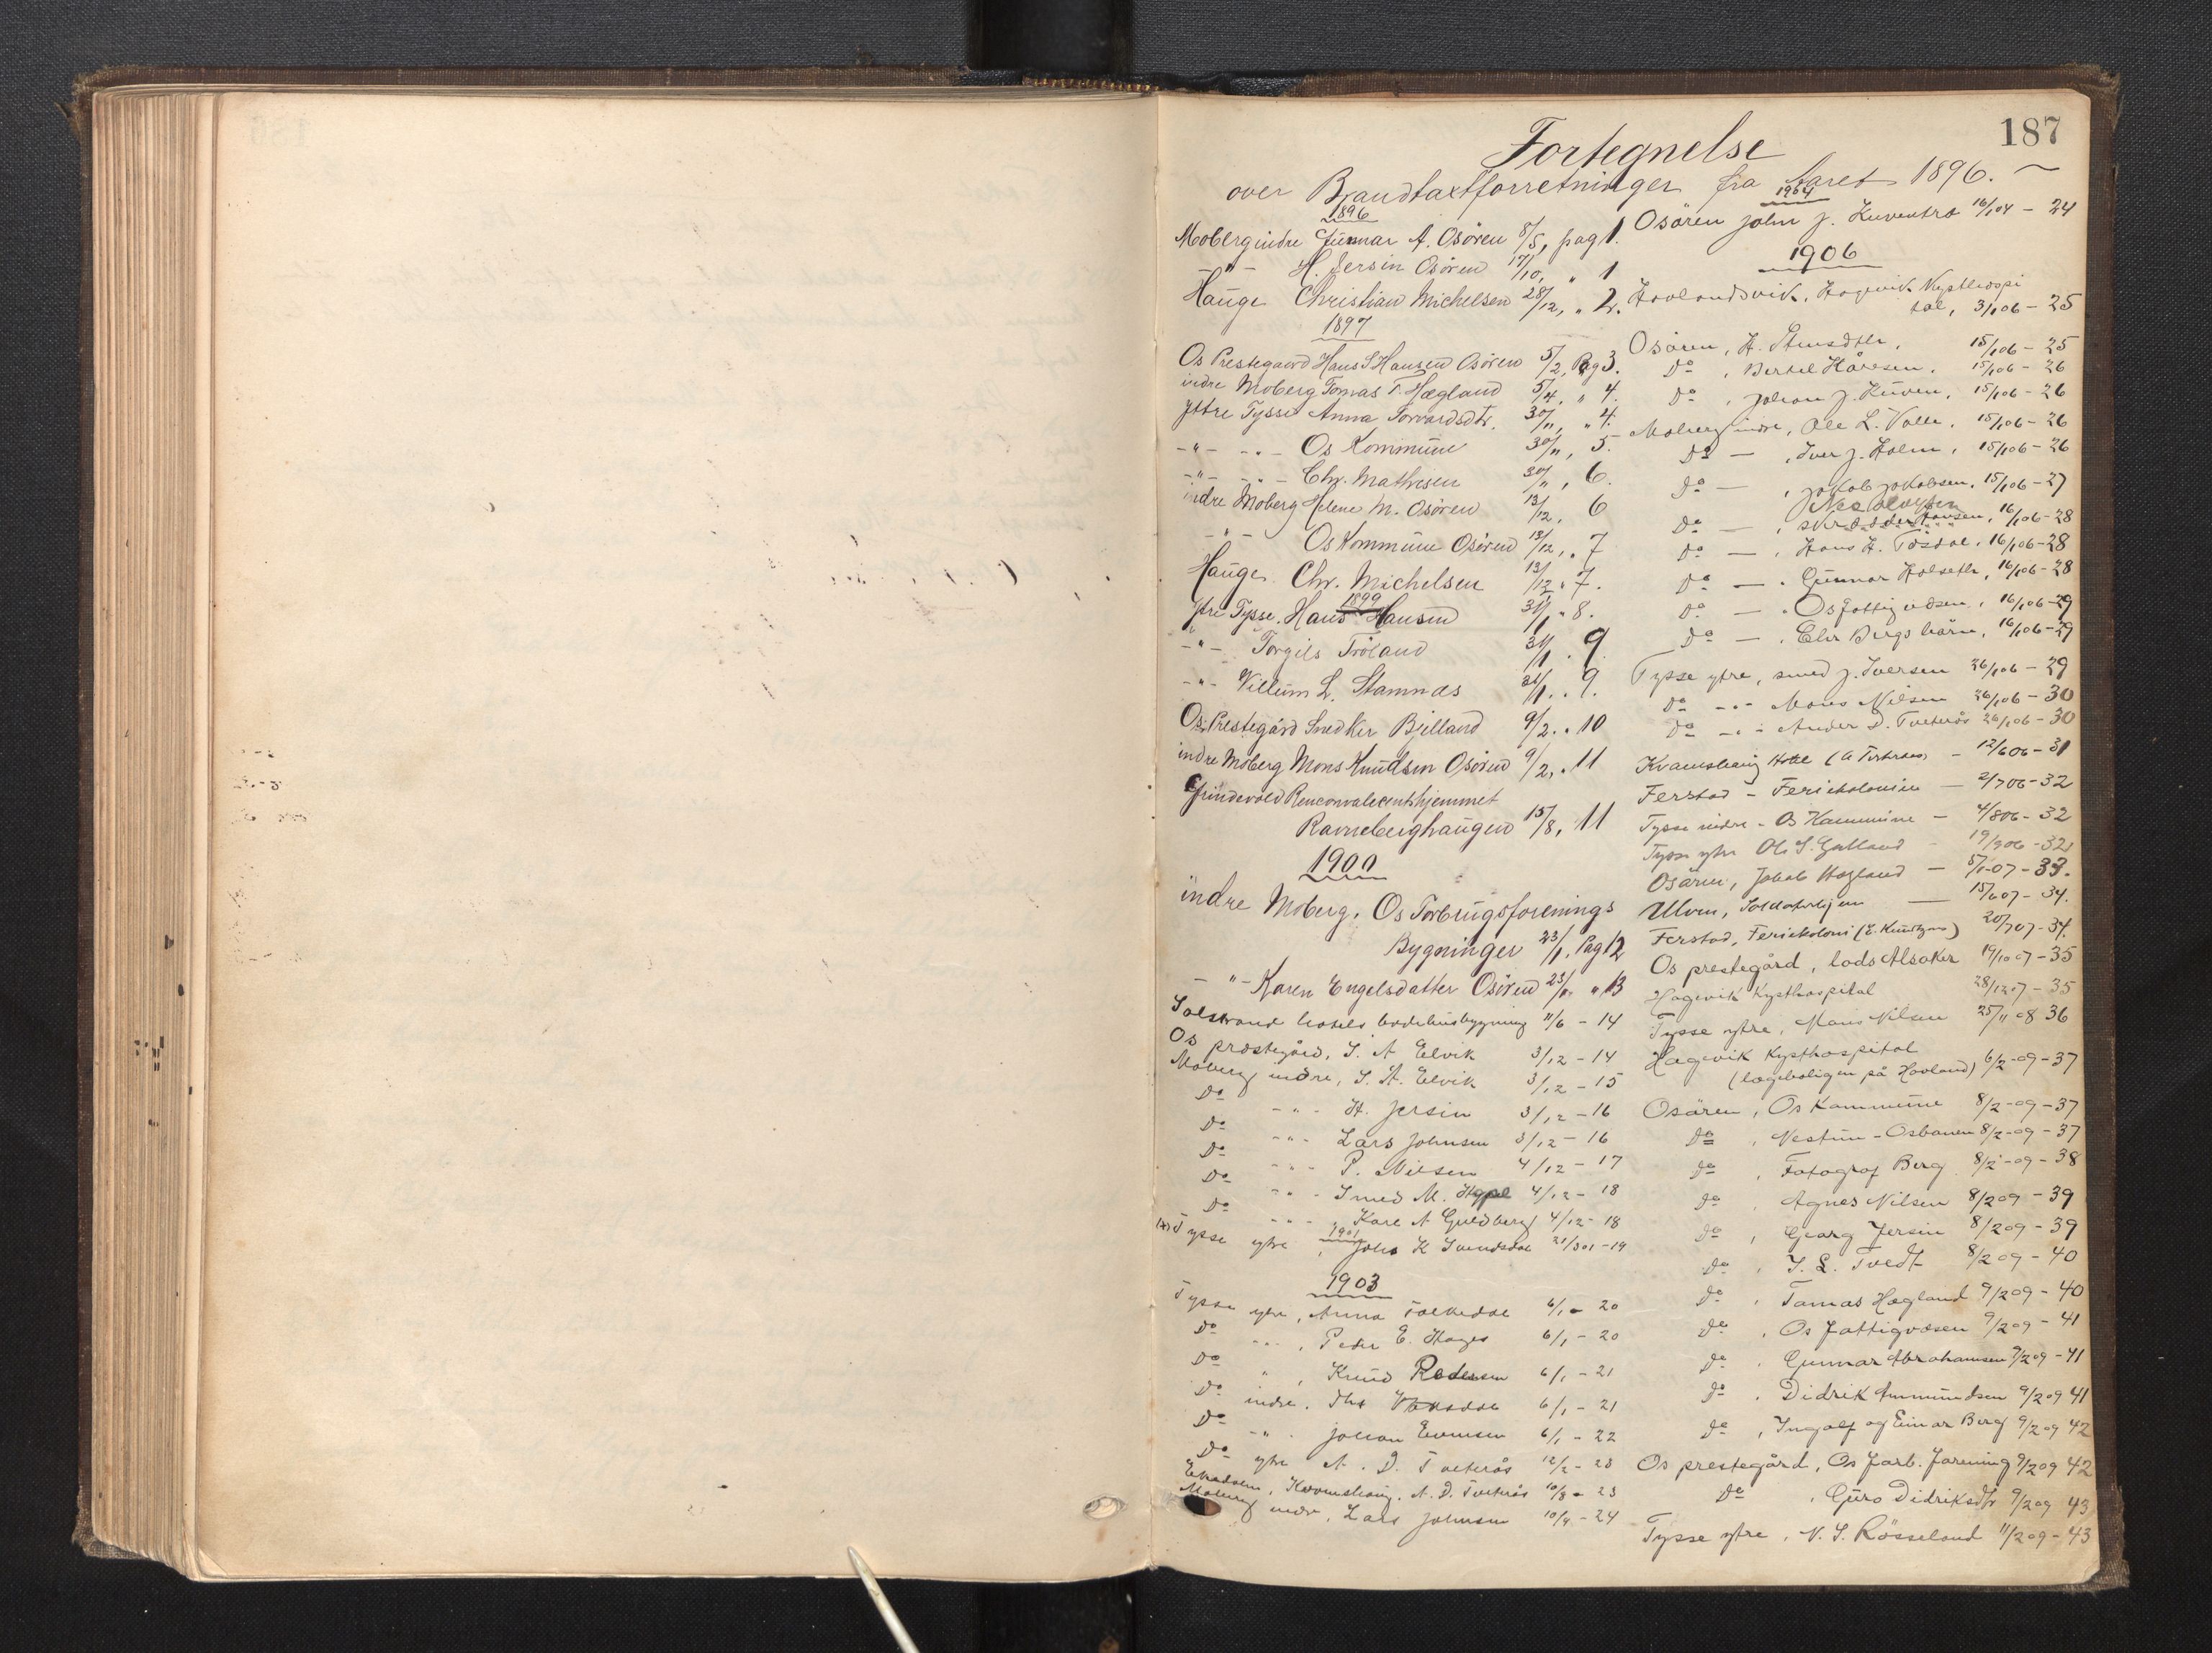 187
Fortegnelse
over Brandtaxtforretninger fra Aaret 1896.
1896
Moberg indre Gunnar A. Osören 8/5, pag 1.
-"- H. Jersin Osören 17/10, " 1
Hauge Christian Michelsen 28/12, " 2.
1897
Os Prestegaard Hans S Hansen Osören 5/2, Pag 3.
indre Moberg Tomas T. Hægland 5/4, " 4.
Yttre Tysse Anna Torvardsdtr. 30/11, " 4.
-"- -"- Os Kommune 30/11, 5.
-"- -"- Chr. Mathisen 30/11, 6.
indre Moberg Helene M. Osören 13/12, 6
-"- Os Kommune Osören 13/12, " 7
Hauge Chr. Michelsen 13/12 " 7.
1899
Ytre Tysse. Hans Hansen 31/1, " 8.
-"- Torgils Tröland 31/1 . 9.
-"- Villum L. Stamnæs 31/1 . 9.
Os Prestegård Snedker Bjelland 9/2 . " 10
indre Moberg Mons Knudsen Osören 9/2, . 11
Grindevold Renconvalecentshjemmet
Ravneberghaugen 15/8, 11
1900
indre Moberg. Os Forbrugsforenings
Bygninger 23/1, Pag 12
-"- Karen Engelsdatter Osören 23/1 " 13
Solstrand hotels badehusbygning 11/6 - 14
Os prestegård, S. A. Elvik 3/12 - 14
Moberg indre, S. A. Elvik 3/12 - 15
Do -"- H. Jersin 3/12 - 16
Do -"- Lars Johnsen 3/12 - 16
Do -"- P. Nilsen 4/12 - 17
Do -"- Smed M. 4/12 - 18
Do -"- Karl A Guldberg 4/12 - 18
1901
Tysse ytre, John K Svendsdal 21/301 - 19
1903
Tysse ytre, Anna 6/1 - 20
Do -"-, Peder E. Hauges 6/1 - 20
Do ", Knud Pedersen 6/1 - 21
Do indre. 6/1 - 21
Do -"- Johan Evensen 6/1 - 22
Do ytre A. D. Tveterås 12/2 - 23
Kvamshaug, A. D. Tveterås 10/8 - 23
Moberg indre, Lars Johnsen 10/9 - 24
1904
Osören John J. 16/104 - 24
1906
Hovlandsvik, Hagevik Kysthospi
tal, 3/106 - 25
Osören, H. 15/106 - 25
Do, Bertel Håresen, 15/106 - 26
Do, Johan J. Kuven, 15/106 - 26
Moberg indre, Ole L. Valle, 15/106 - 26
Do —, Iver J. Holm, 15/106 - 26
Do —, Jakob Jakobsen, 15/106 - 27
Do —, 16/106 - 28
Do —, Hans H. Tösdal, 16/106 - 28
Do — . Gunnar 16/106 - 28
Do — . Os fattigvæsen, 16/106 - 29
Do —, 16/106 - 29
Tysse ytre, smed J. Iversen 26/106 - 29
Do -"- Mons Nilsen 26/106 - 30
Do -"- Anders D. Tveterås 26/106 - 30
Kvamshaug Hotel - 12/606 - 31
Ferstad - Feriekolonien — 2/706 - 32
Tysse indre - Os Kommune - 4/806 - 32
Tysse ytre Ole S. 19/906 - 32
Osören, Jakob Hagland — 5/1-07 - 33.
Ulven, Soldaterhjem — 15/607 - 34.
Ferstad, Feriekoloni 20/707 - 34.
Os prestegård, lods Alsaker 19/1007 - 35
Hagevik Kysthospital 28/1207 - 35
Tysse ytre, Mons Nilsen 25/1108 36
Hagevik Kysthospital
(lægeboligen på Hovland) 6/2-09 - 37
Osören, Os Kommune 8/2-09 - 37
Do, Nestun-Osbanen 8/2-09 - 37
Do, Fotograf Berg 8/2-09 - 38
Do, Agnes Nilsen 8/209 - 39
Do, Georg Jersin 8/209 - 39
Do, S. L. Tvedt 8/209 - 40
Do, Tomas Hægland 9/209 - 40
Do, Os Fattigvæsen 9/209 - 41
Do, Gunnar Abrahamsen 9/209 - 41
Do, Didrik Ammundsen 9/209 41
Do, Ingolf og Einar Berg 9/209 42
Os prestegård, Os forb. forening 9/209 42
Do, Guro Didriksdtr 9/209 43
Tysse ytre, N. S. Rösseland 11/209 - 43